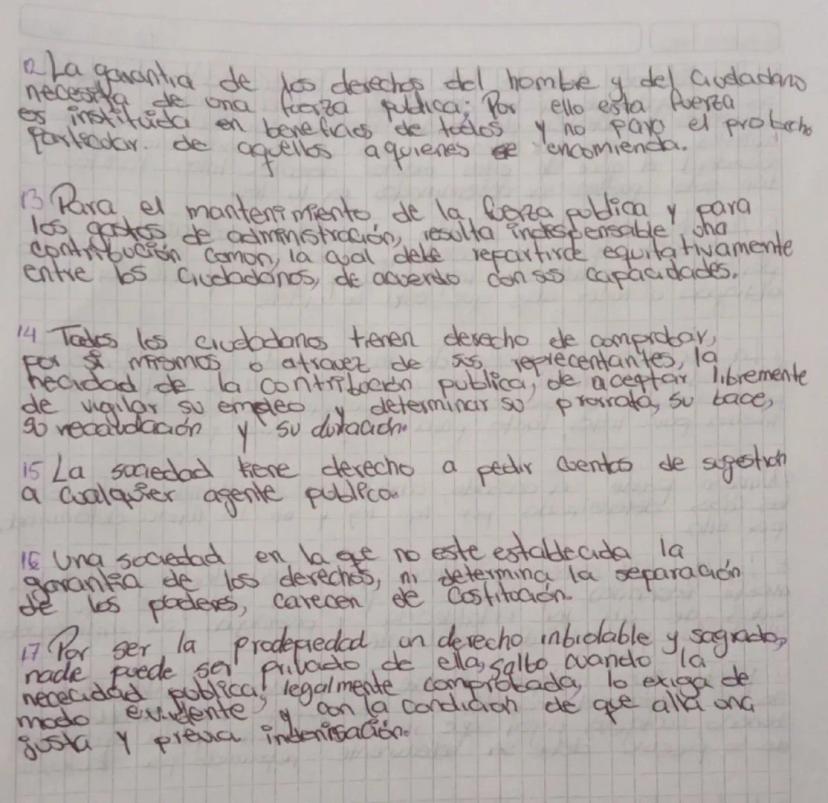 12 La garantia de los derechos del hombre y del ciudadano
necesita de una fuerza publica; Por ello esta fuerza
es instituida en beneficios de todos y no para el probecho
particular. de aquellos aquienes se encomienda.
13 Para el mantenimiento de la fuerza publica y para
los gastos de administración, resulta indispensable una
contribución comon, la cual debe repartirce equitativamente
entre los ciudadanos, de acuerdo con sus capacidades.
14 Todos los ciudadanos tienen derecho de comprobar,
por si mismos o atravez de sus reprecentantes, la
necidad de la contribución publica, de aceptar libremente
de vigilar su empleo y determinar su prorrata, su bace,
su recaudación y su duración.
15 La sociedad tiene derecho a pedir cuentas de sugestion
a cualquier agente publico.
16 Una sociedad en la que no este establecida la
garantia de los derechos, ni determina la separación
de los poderes, carecen de Costitución.
17 Por ser la prodepiedad un derecho inbiolable y sagrado,
nade puede ser privado de ella, salbo cuando la
nececidad publica, legalmente comprobada, lo exiga de
modo evidente, y con la condicion de que alla una
justa y previa indenisación.